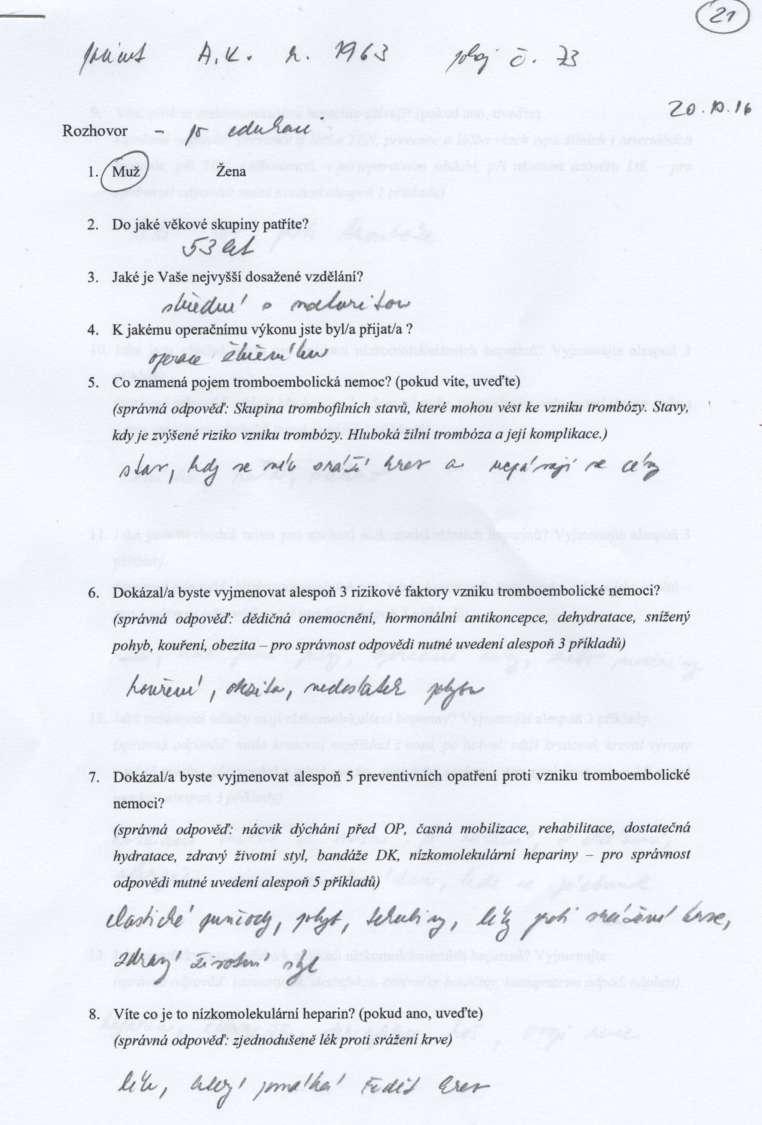 21
A.K. n. 1963 pokoj č. 73
20.10.16
Rozhovor – po edukaci
1. Muž Žena
2. Do jaké věkové skupiny patříte?
53 let
3. Jaké je Vaše nejvyšší dosažené vzdělání?
střední s maturitou
4. K jakému operačnímu výkonu jste byl/a přijat/a ?
operace žlučníku
5. Co znamená pojem tromboembolická nemoc? (pokud víte, uveďte)
(správná odpověď: Skupina trombofilních stavů, které mohou vést ke vzniku trombózy. Stavy,
kdy je zvýšené riziko vzniku trombózy. Hluboká žilní trombóza a její komplikace.)
stav, kdy se sráží krev a ucpávají se cévy
6. Dokázal/a byste vyjmenovat alespoň 3 rizikové faktory vzniku tromboembolické nemoci?
(správná odpověď: dědičná onemocnění, hormonální antikoncepce, dehydratace, snížený
pohyb, kouření, obezita – pro správnost odpovědi nutné uvedení alespoň 3 příkladů)
kouření, obezita, nedostatek pohybu
7. Dokázal/a byste vyjmenovat alespoň 5 preventivních opatření proti vzniku tromboembolické
nemoci?
(správná odpověď: nácvik dýchání před OP, časná mobilizace, rehabilitace, dostatečná
hydratace, zdravý životní styl, bandáže DK, nízkomolekulární hepariny – pro správnost
odpovědi nutné uvedení alespoň 5 příkladů)
elastické punčochy, pohyb, tekutiny, léky proti srážení krve,
zdravý životní styl
8. Víte co je to nízkomolekulární heparin? (pokud ano, uveďte)
(správná odpověď: zjednodušeně lék proti srážení krve)
lék, který pomáhá ředit krev